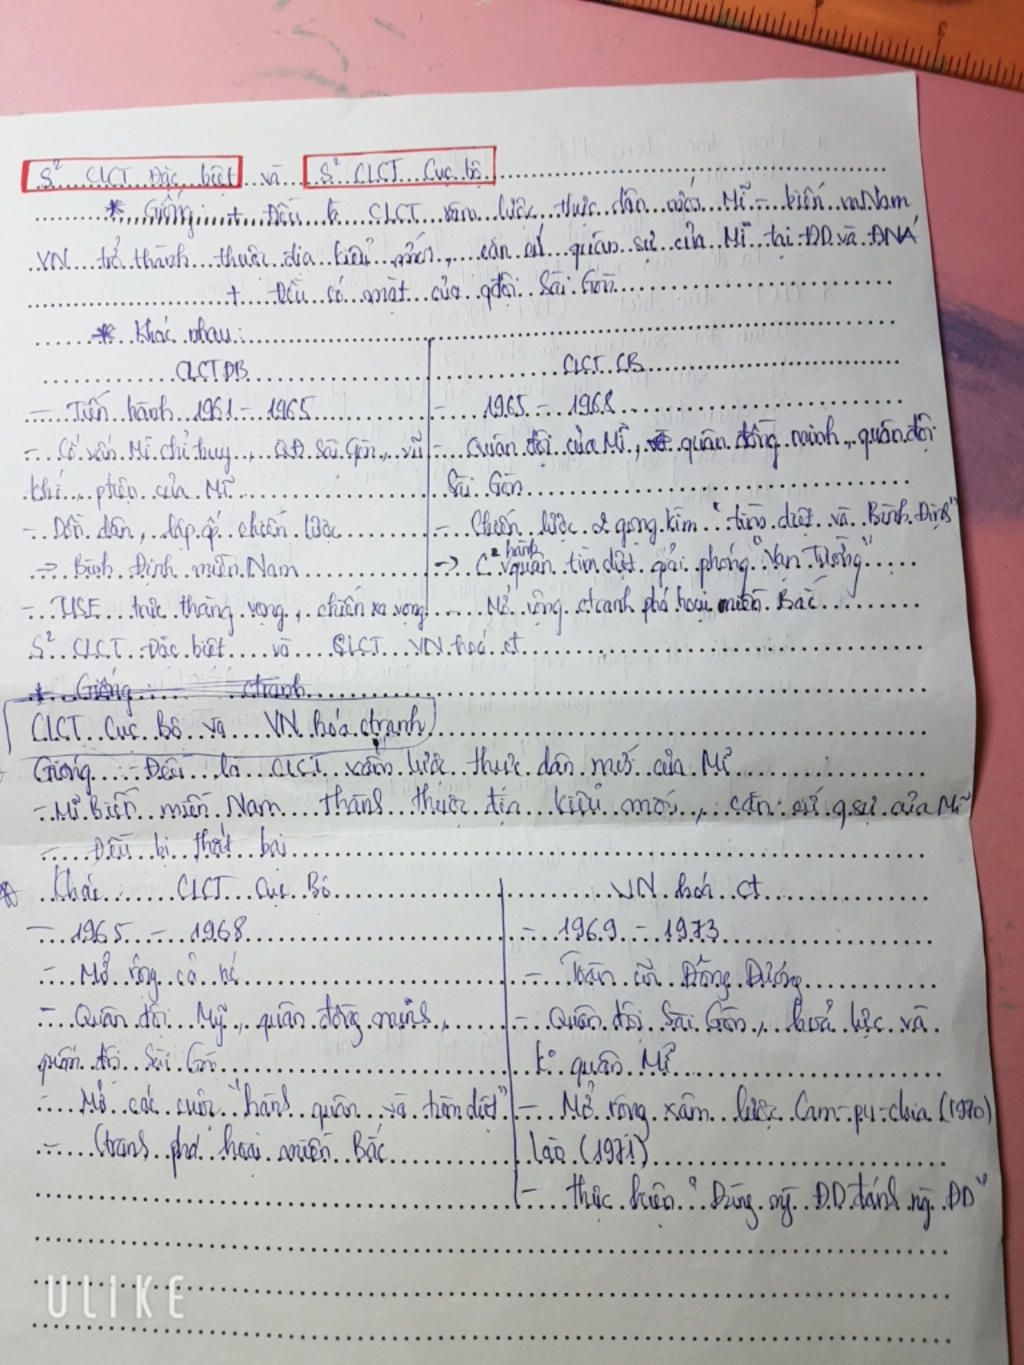 S² CLCT Đặc biệt và S² CLCT Cục bộ
* Giống: + Đều là CLCT xâm lược thực dân mới Mĩ - biến m Nam
VN trở thành thuộc địa kiểu mới, căn cứ quân sự của Mĩ tại ĐD và ĐNÁ
+ Đều có mặt của qđội Sài Gòn
* Khác nhau:
CLCT ĐB
CLCT CB
- Tiến hành 1961 - 1965
- 1965 - 1968
- Cố vấn Mĩ chỉ huy, QĐ Sài Gòn, vũ
khí, ptiện của Mĩ
- Quân đội của Mĩ, quân đồng minh, quân đội
Sài Gòn
- Dồn dân, lập ấp chiến lược
- Chiến lược 2 gọng kìm "tìm diệt và Bình Định"
-> Bình Định miền Nam
-> C² hành quân tìm diệt giải phóng "Vạn Tường"
- trực thăng vọng, chiến xa vọng
- Mở rộng ctranh phá hoại miền Bắc
S² CLCT Đặc biệt và CLCT VN hoá ct
* Giống: ctranh
CLCT Cục Bộ và VN hóa ctranh
Giống - Đều là CLCT xâm lược thực dân mới của Mĩ
- Mĩ Biến miền Nam thành thuộc địa kiểu mới, căn cứ qsự của Mĩ
- Đều bị thất bại
Khác CLCT Cục Bộ
VN hoá ct
- 1965 - 1968
- 1969 - 1973
- Mở rộng cả nc
- Toàn cõi Đông Dương
- Quân đội Mỹ, quân đồng minh,
quân đội Sài Gòn
- Quân đội Sài Gòn, hoả lực và
k° quân Mĩ
- Mở các cuộc "hành quân và tìm diệt"
- Ctranh phá hoại miền Bắc
- Mở rộng xâm lược Cam-pu-chia (1970)
Lào (1971)
- thực hiện "Dùng ng ĐD đánh ng ĐD"
ULIKE